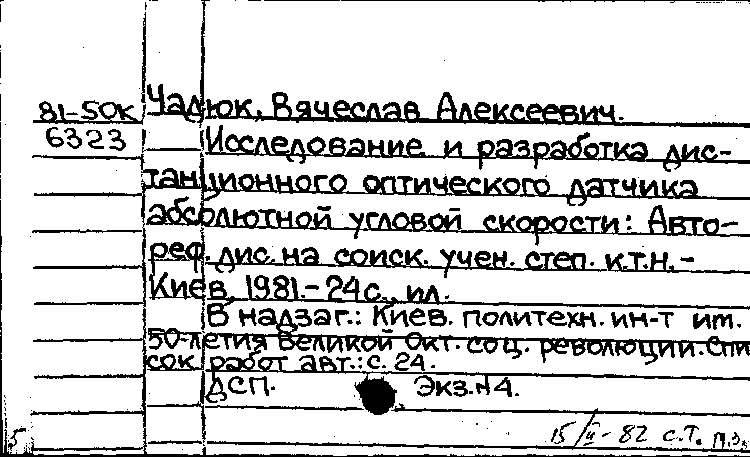 81-50к Чадюк, Вячеслав Алексеевич.
6323 Исследование и разработка дис-
танционного оптического датчика
абсолютной угловой скорости: Авто-
реф. дис. на соиск. учен. степ. к.т.н. -
Киев, 1981. - 24 с., ил.
В надзаг.: Киев. политехн. ин-т им.
50-летия Великой Окт. соц. революции. Спи
сок работ авт.: с. 24.
ДСП. Экз. N 4.
15/II - 82 с.т.
5